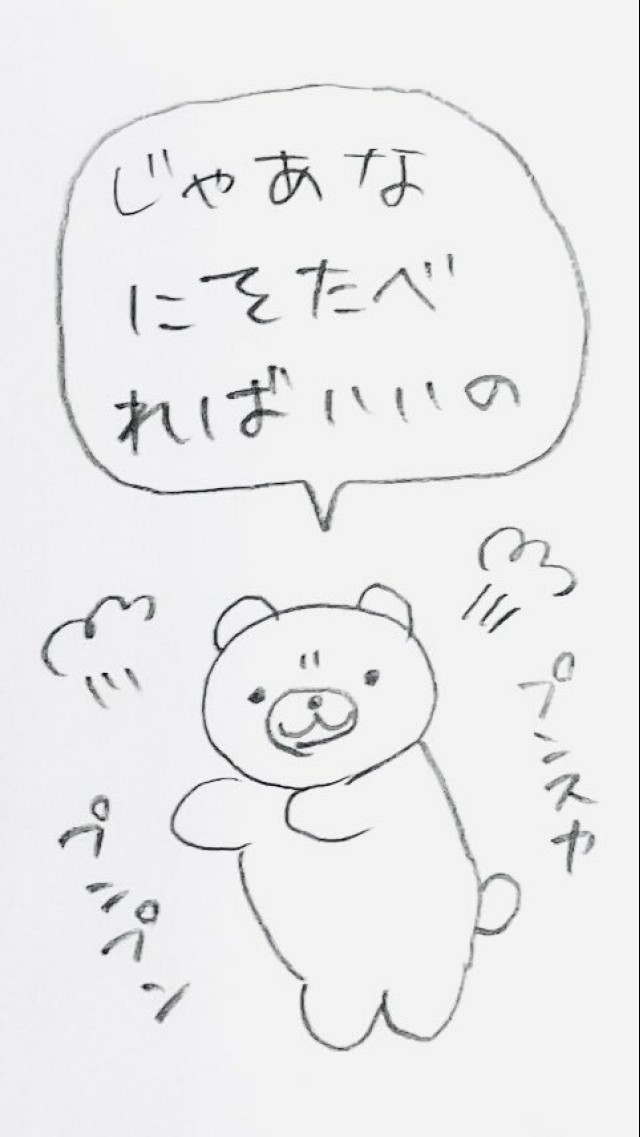 じゃあな
にをたべ
ればいいの
プンスカ
プンプン